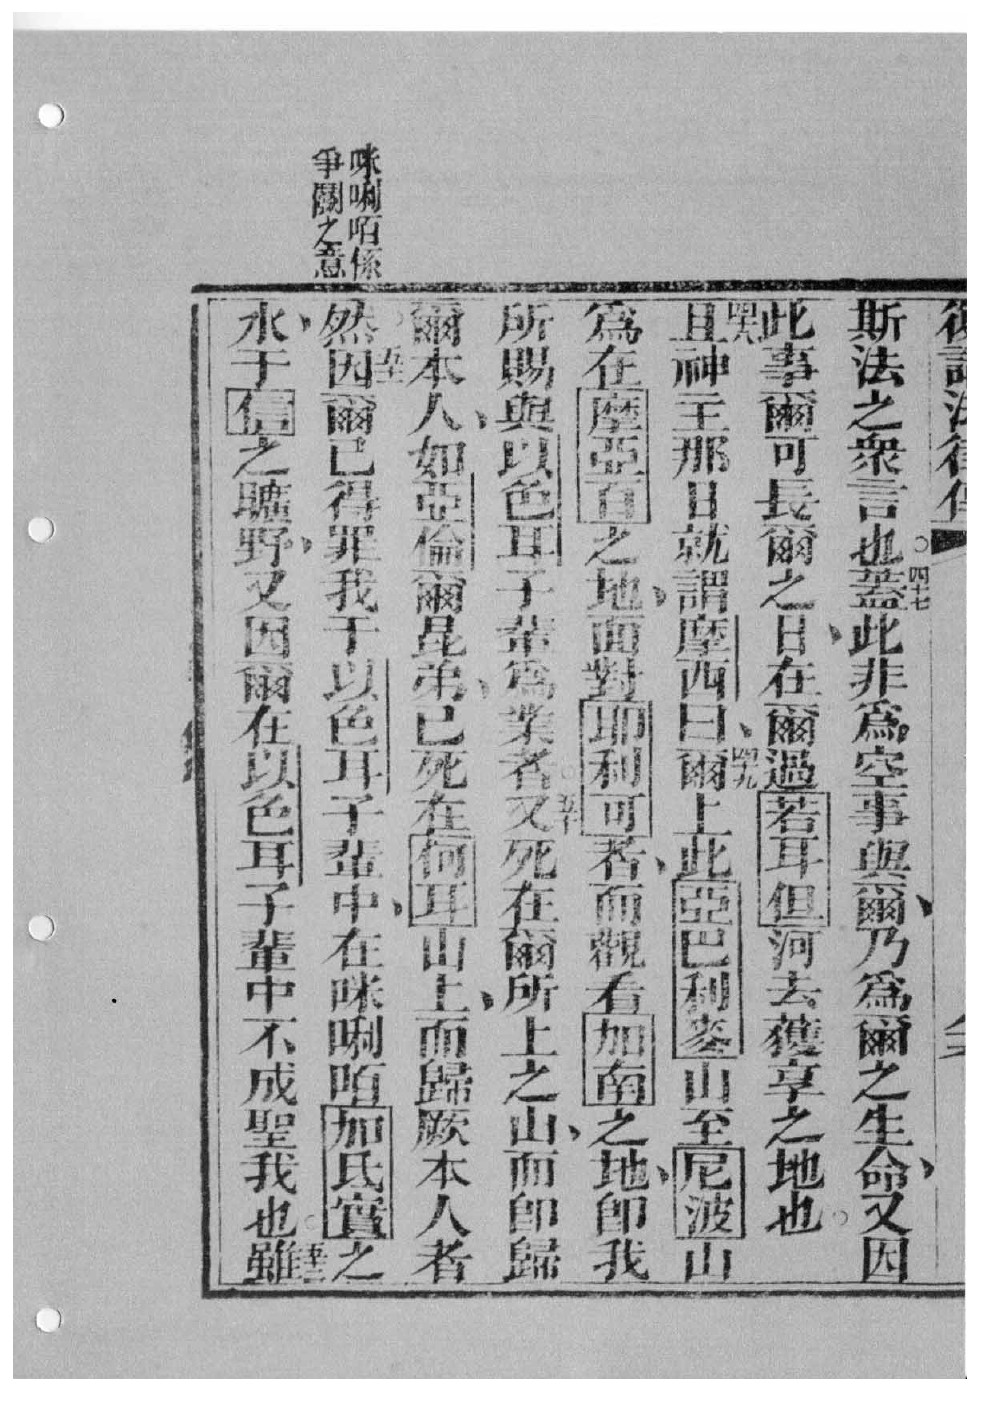 咪唎咟係
爭鬭之意
復講法律傳
斯法之衆言也四十七蓋此非爲空事與爾乃爲爾之生命又因
此事爾可長爾之日在爾過若耳但河去獲享之地也
四八且神主那日就謂摩西曰四九爾上此亞巴利麥山至尼波山
爲在摩亞百之地面對耶利可者而觀看加南之地卽我
所賜與以色耳子輩爲業者五十又死在爾所上之山而卽歸
爾本人如亞倫爾昆弟已死在何耳山上而歸厥本人者
然五一因爾已得罪我于以色耳子輩中在咪唎咟加氏實之
水于信之曠野又因爾在以色耳子輩中不成聖我也五二雖